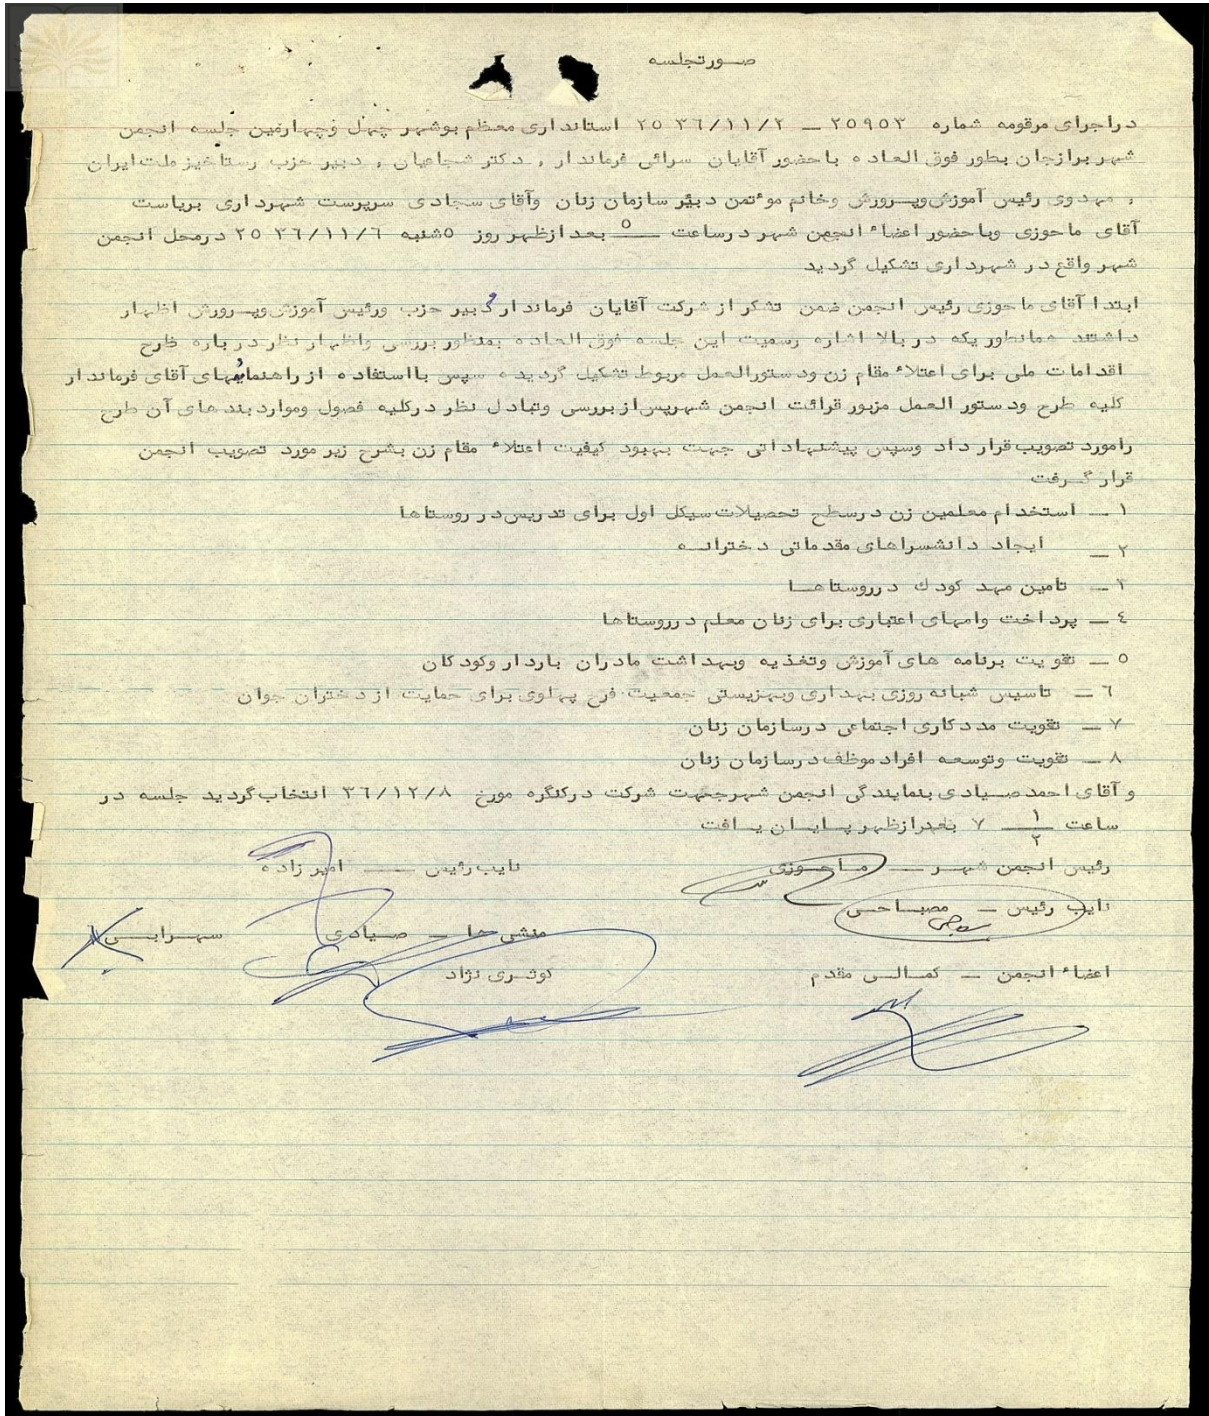 صورتجلسه
دراجرای مرقومه شماره ۲۵۹۵۳ ــ ۲۵۳۶/۱۱/۲ استانداری معظم بوشهر چهل وچهارمین جلسه انجمن
شهر برازجان بطور فوق العاده باحضور آقایان سرائی فرماندار , دکتر شجاعیان , دبیر حزب رستاخیز ملت ایران
, مهدوی رئیس آموزش وپـرورش وخانم موءتمن دبیر سازمان زنان وآقای سجادی سرپرست شهرداری بریاست
آقای ماحوزی وباحضور اعضاء انجمن شهر درساعت ۵ بعدازظهر روز ۵شنبه ۲۵۳۶/۱۱/۶ درمحل انجمن
شهر واقع در شهرداری تشکیل گردید
ابتدا آقای ماحوزی رئیس انجمن ضمن تشکر از شرکت آقایان فرماندار و دبیر حزب ورئیس آموزش وپـرورش اظهار
داشتند همانطوریکه در بالا اشاره رسمیت این جلسه فوق العاده بمنظور بررسی واظهار نظر در باره طرح
اقدامات ملی برای اعتلاء مقام زن ودستورالعمل مربوط تشکیل گردیده سپس بااستفاده از راهنمائیهای آقای فرماندار
کلیه طرح ودستور العمل مزبور قرائت انجمن شهرپس از بررسی وتبادل نظر درکلیه فصول وموارد بند های آن طرح
رامورد تصویب قرار داد وسپس پیشنهاداتی جهت بهبود کیفیت اعتلاء مقام زن بشرح زیر مورد تصویب انجمن
قرار گـرفت
۱ ــ استخدام معلمین زن درسطح تحصیلات سیکل اول برای تدریس در روستاها
۲ ــ ایجاد دانشسراهای مقدماتی دخترانـه
۳ ــ تامین مهد کودک درروستاهـا
۴ ــ پرداخت وامهای اعتباری برای زنان معلم درروستاها
۵ ــ تقویت برنامه های آموزش وتغذیه وبهداشت مادران باردار وکودکان
۶ ــ تاسیس شبانه روزی بهداری وبهزیستی جمعیت فرح پهلوی برای حمایت از دختران جوان
۷ ــ تقویت مددکاری اجتماعی درسازمان زنان
۸ ــ تقویت وتوسعه افراد موظف درسازمان زنان
و آقای احمد صـیادی بنمایندگی انجمن شهرجهت شرکت درکنگره مورخ ۳۶/۱۲/۸ انتخاب گردید جلسه در
ساعت ۱/۲ ۷ بعدازظهر پـایـان یـافت
رئیس انجمن شهـر ــ مـاحـوزی نایب رئیس ــ امیرزاده
نایب رئیس ــ مصبـاحـی منشی ها ــ صـیادی سهـرابـی
اعضاء انجمن ــ کمـالـی مقدم کوثـری نژاد